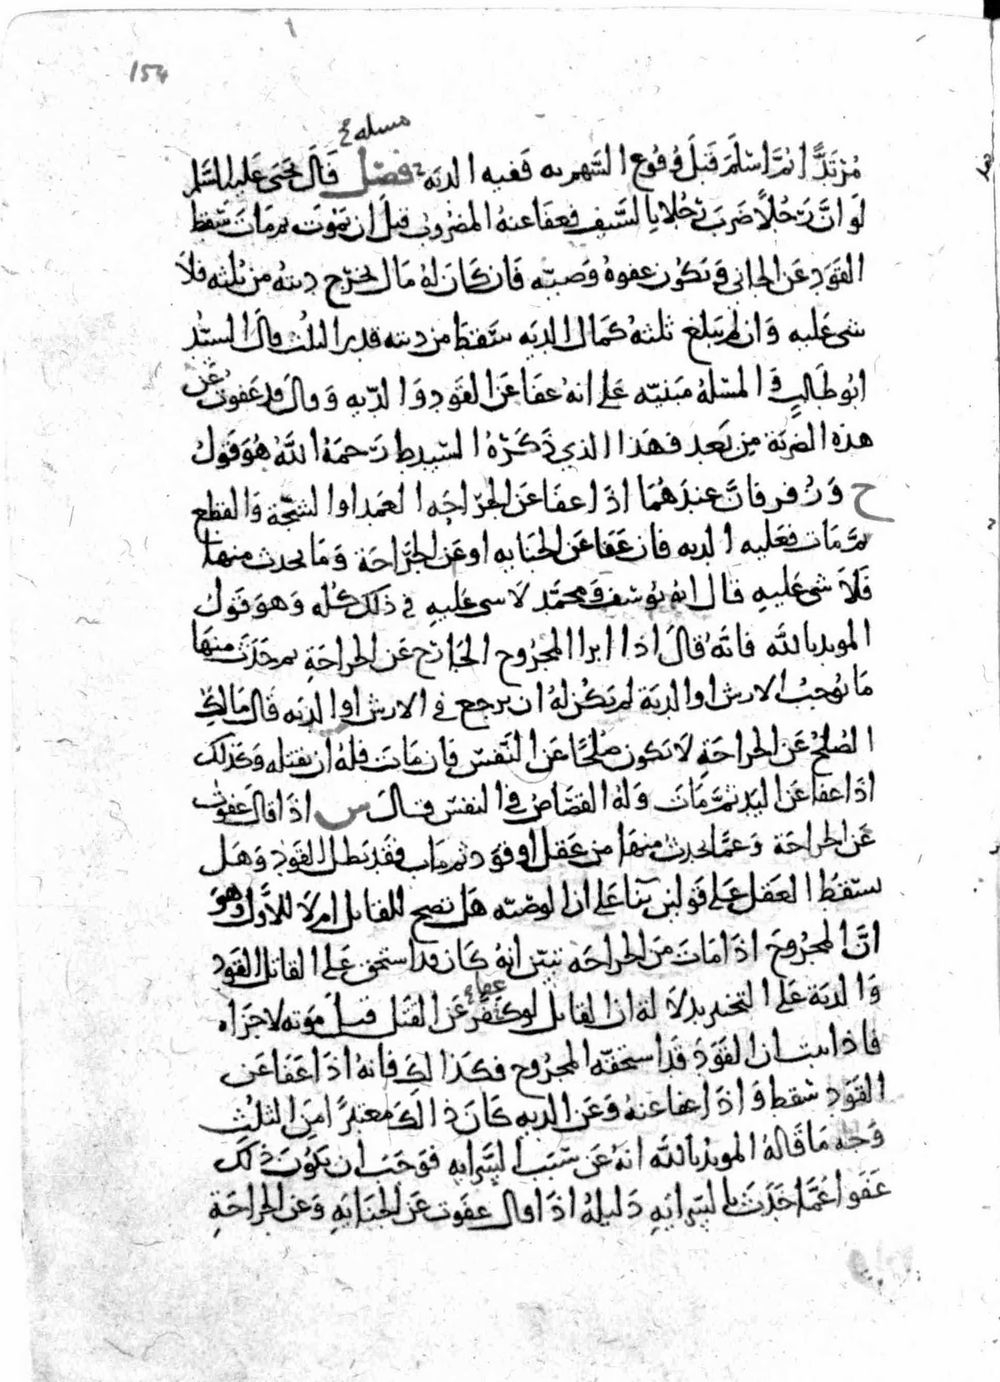 154
مسله ع
مرتدًّا ثمَّ اسْلَمَ قَبلَ وُقُوع السَّهم به ففيه الديَه فصل قالَ يحيى عَليه السَّلم
لَو انَّ رَجُلاً ضَرَبَ رَجُلا بالسَّيف فعَفَا عنه المضروب قبلَ ان يَمُوت ثم مَات سَقط
القَوَد عَن الجاني وَيَكون عفوهُ وَصيّه فَان كَانَ لهُ مَال يخرج ديته من ثلثه فلا
شي عَليه وَان لم يَبلغ ثلثهُ كمال الديَه سَقط من ديته قدر الثلث قال السيّد
ابُو طَالبٍ وَالمسْلهُ مَبنيّه عَلى انهُ عفَا عَن القَوَد وَالديّه وَقال قد عَفوت عَن
هذه الضربَة من بَعد فهَذا الذي ذكَرَهُ السّيد ط رَحمَهُ اللَّهُ هُوَ قَول
ح وَزُفر فانَّ عندَهُمَا اذا عفَا عَن الجرَاحَه العَمد او الشّجّة وَالقطع
ثمَّ مَات فعَليه الديه فان عَفا عَن الجنايه او عَن الجرَاحَة وَمَا يحدث منها
فَلاَ شي عَليهِ قال ابو يُوسُف وَمحمَّد لاَ شي عَليهِ في ذلك كُله وَهوَ قَولُ
المويد بالله فانَّهُ قالَ اذا ابرا المجرُوح الجَارح عَن الجراحَةِ ثم حَدَث منهَا
مَا يُوجبُ الارش او الديَة لم يكن لهُ ان يرجع في الارش او الديَه قالَ مَالك
الصُلحُ عَن الجراحَةِ لاَ يكون صُلحًا عَن النّفس فَان مَات فلهُ ان يقتله وَكذلك
اذا عفا عَن اليَد ثمَّ مَات وَلهُ القصَاص في النفس قالَ س اذا قالَ عفوت
عَن الجراحَة وَعمَّا يحدث منهَا من عَقل او قوَد ثم مات فقَد بَطل القوَد وَهَل
يسقطُ العَقل عَلى قَولين بنا عَلى ان الوصيّه هَل تصح للقاتل ام لاَ للاَول وَهوَ
انَّ المجرُوحَ اذا مَات مَن الجراحَه تبيّن انهُ كَان قد استحق عَلى القاتل القَوَد
وَالديَة عَلى التخيير بدلاَلة ان القاتل لو كفَّر عَن القَتل قبل مَوته لاجزَاه
عفا ع
فاذا ثبت ان القَوَد قَد استحقّه المجرُوح فكذالك فَانهُ اذا عَفَا عَن
القَوَد سَقط وَاذا عفَا عنهُ وَعَن الديه كَان ذالكَ معتبرًا مِن الثلُث
وَجه مَا قَالهُ المويد بالله انهُ عَن سَبَب السرايه فوَجَبَ ان يكون ذلك
عَفوا عَمَّا حَدَث بالسّرايَهِ دَليلهُ اذا قال عفوت عَن الجنَايَهِ وَعن الجراحَةِ